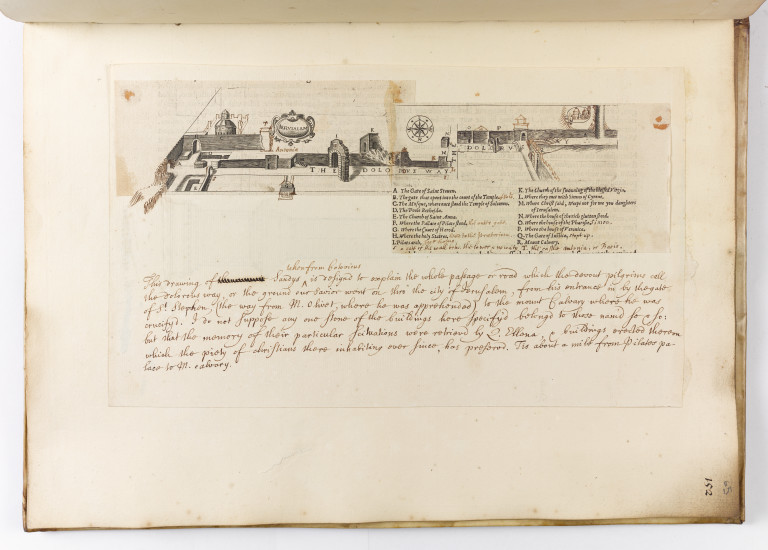 IERUSALEM
Antonia
THE DOLOROUS WAY
DOLOROUS WAY
A. The Gate of Saint Steuen.
B. The gate that open'd into the court of the Temple.
C. The Mosque, where once stood the Temple of Salomon.
D. The Poole Bethesda.
E. The Church of Saint Anna.
F. Where the Palace of Pilat stood,
G. Where the Court of Herod.
H. Where the holy Staires,
I. Pilats arch,
K. The Church of the swouning of the blessed Virgin.
L. Where they met with Simon of Cyrene,
M. Where Christ said, Weepe not for me you daughters of Ierusalem.
N. Where the house of the rich glutton stood,
O. Where the house of the Pharisee,
P. Where the house of Veronica.
Q. The Gate of Iustice,
R. Mount Calvary,
taken from Cotovicus
This drawing of Sandys is design'd to explain the whole passage or road which the devout pilgrims call
the dolorous way, or the ground our Savior went on thro the city of Jerusalem, from his entrance in by the gate
of St. Stephen, (the way from M. Olivet, where he was apprehended) to the mount Calvary where he was
crucify'd. I do not suppose any one stone of the buildings here specify'd belong'd to those nam'd so &
but that the memory of their particular situations were retriev'd by Q. Ellena, & buildings erected thereon
which the piety of christians there inhabiting ever since, has preserv'd. Tis about a mile from Pilates pa-
lace to M. Calvary.
152